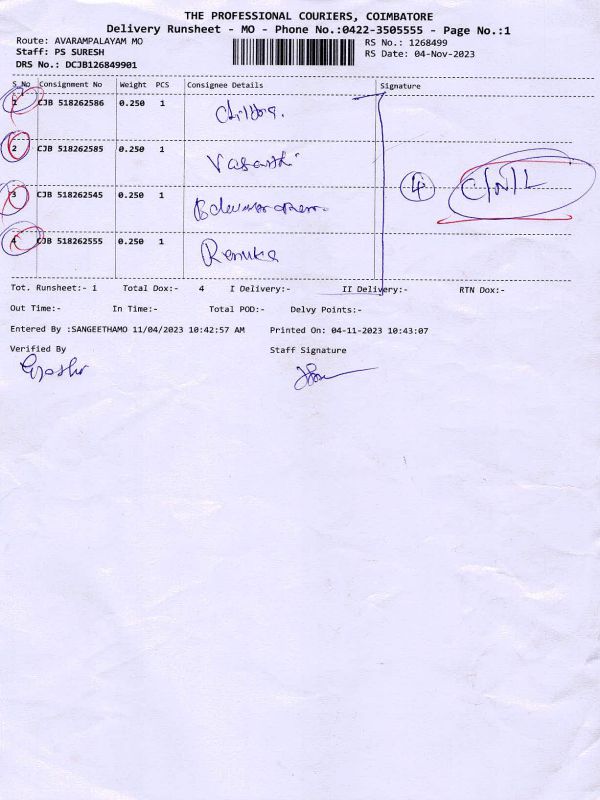 THE PROFESSIONAL COURIERS, COIMBATORE
Delivery Runsheet - MO - Phone No.:0422-3505555 - Page No.:1
Route: AVARAMPALAYAM MO
RS No.: 1268499
Staff: PS SURESH
RS Date: 04-Nov-2023
DRS No.: DCJB126849901
S.No Consignment No Weight PCS Consignee Details Signature
1 CJB 518262586 0.250 1
2 CJB 518262585 0.250 1 Vasanthi
3 CJB 518262545 0.250 1
4 C/N/L
4 CJB 518262555 0.250 1 Renuka
Tot. Runsheet:- 1 Total Dox:- 4 I Delivery:- II Delivery:- RTN Dox:-
Out Time:- In Time:- Total POD:- Delvy Points:-
Entered By :SANGEETHAMO 11/04/2023 10:42:57 AM Printed On: 04-11-2023 10:43:07
Verified By Staff Signature